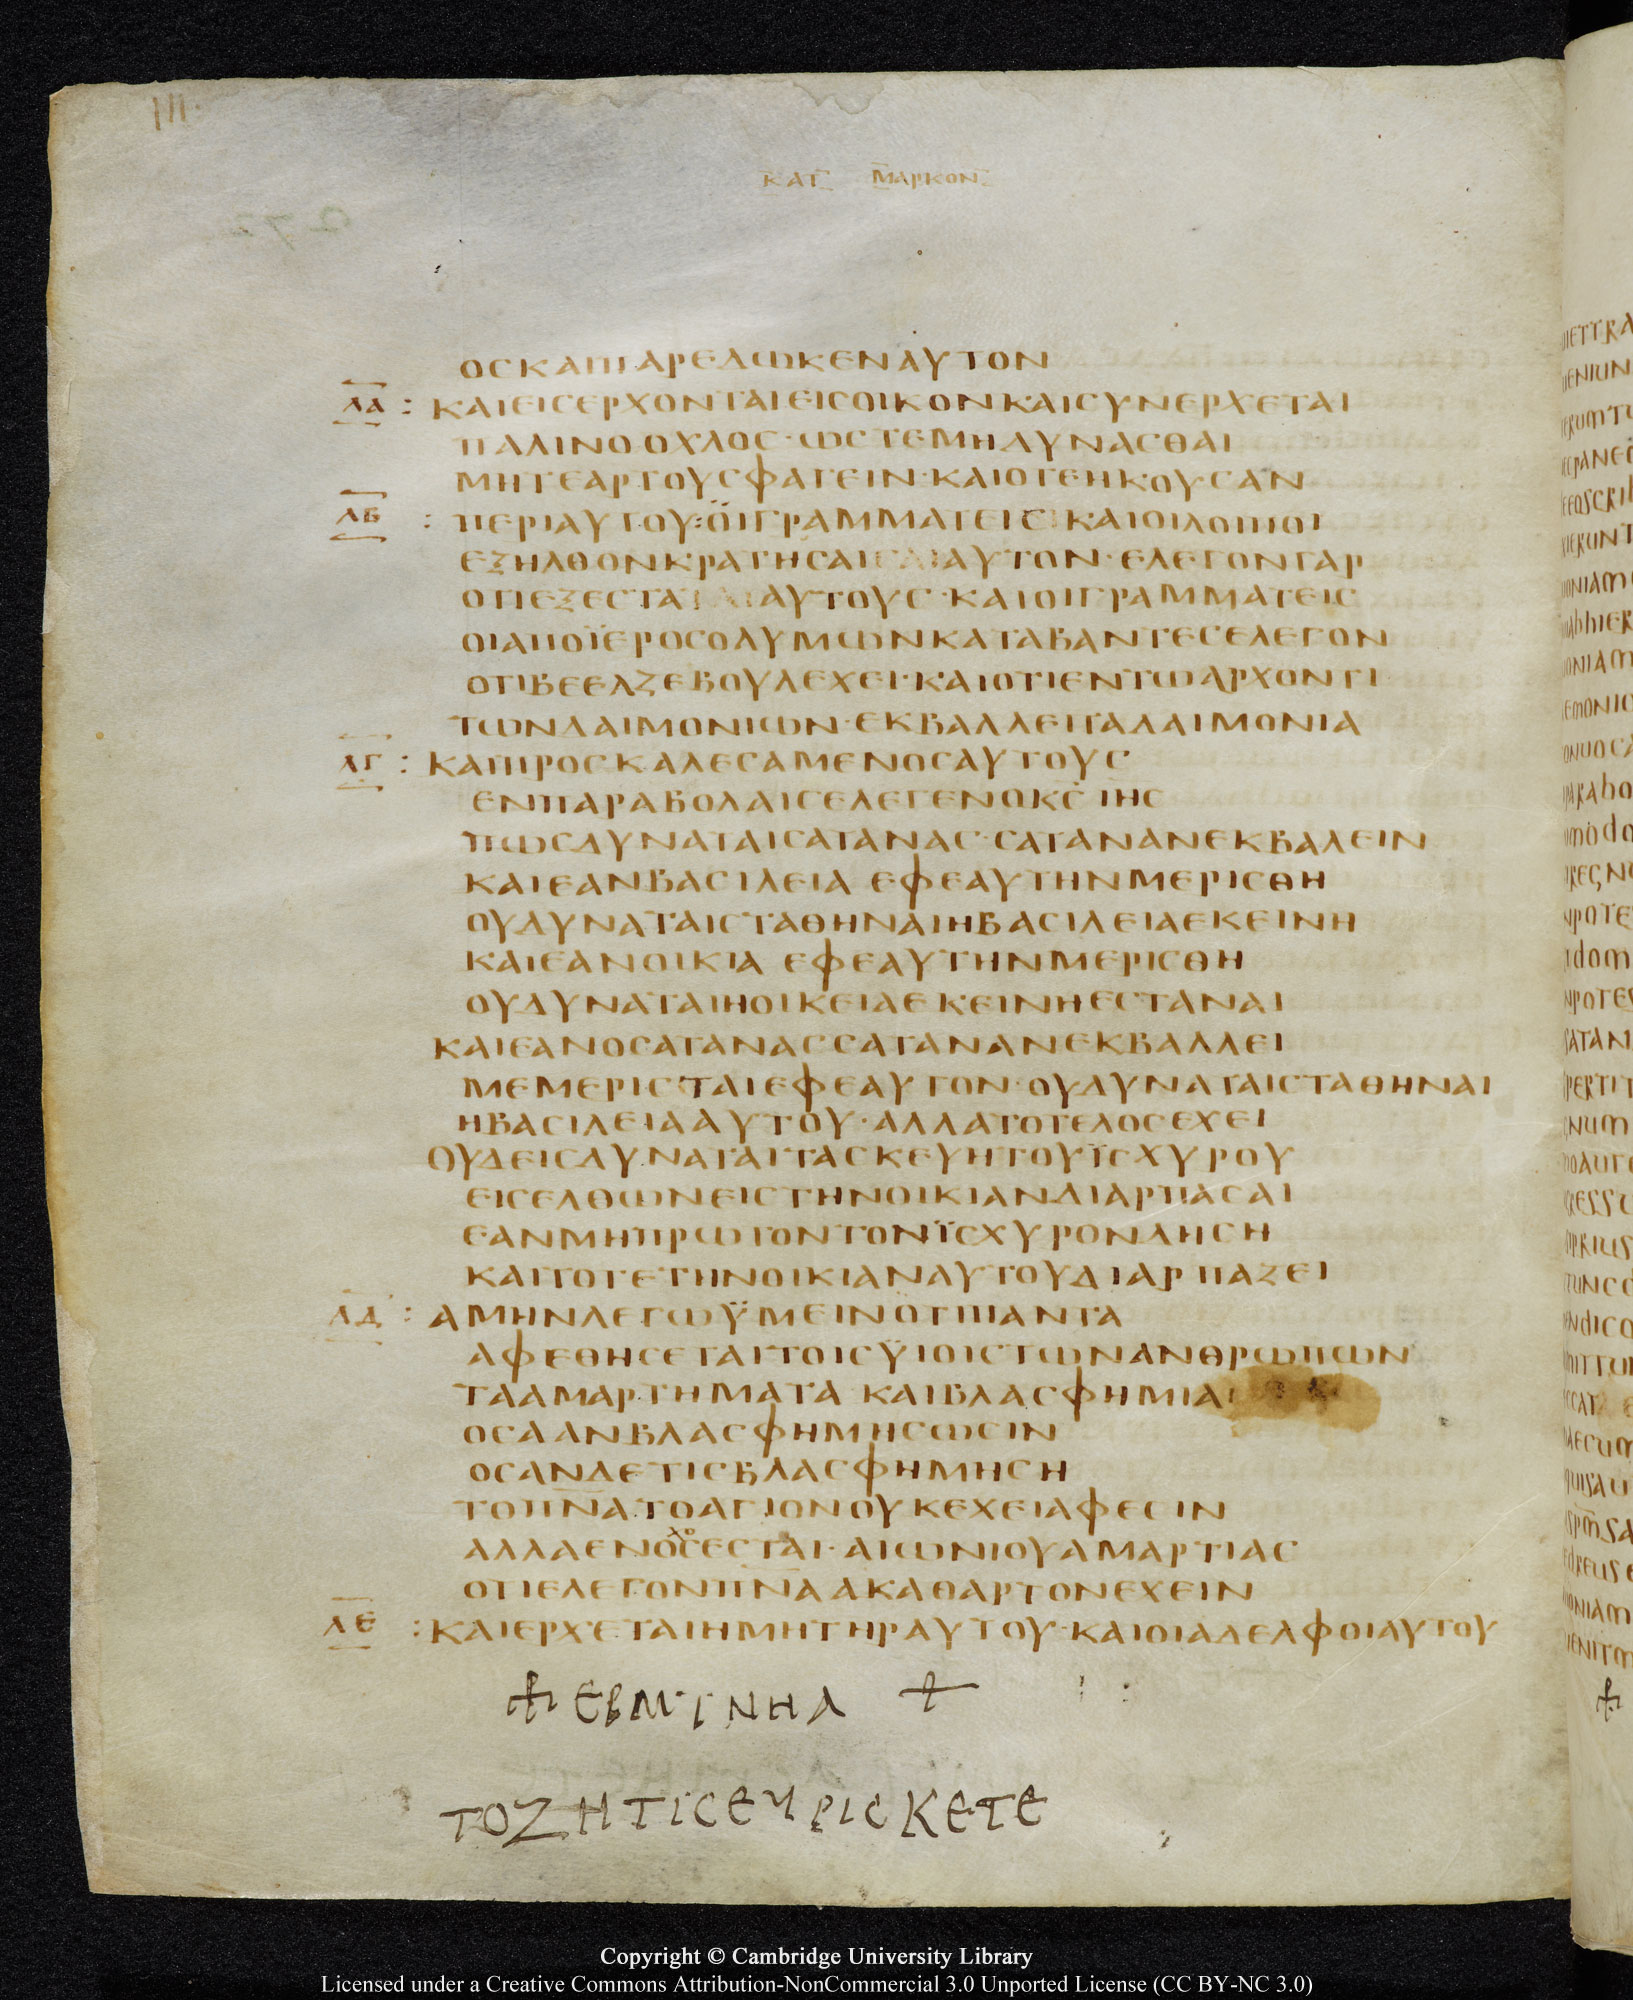 ΚΑΤ ΜΑΡΚΟΝ
ΟΣΚΑΙΠΑΡΕΔΩΚΕΝΑΥΤΟΝ
ΛΑ : ΚΑΙΕΙΣΕΡΧΟΝΤΑΙΕΙΣΟΙΚΟΝΚΑΙΣΥΝΕΡΧΕΤΑΙ
ΠΑΛΙΝΟΟΧΛΟΣ·ΩΣΤΕΜΗΔΥΝΑΣΘΑΙ
ΜΗΤΕΑΡΤΟΥΣΦΑΓΕΙΝ·ΚΑΙΟΤΕΗΚΟΥΣΑΝ
ΛΒ : ΠΕΡΙΑΥΤΟΥ:ΟΙΓΡΑΜΜΑΤΕΙΣΚΑΙΟΙΛΟΙΠΟΙ
ΕΞΗΛΘΟΝΚΡΑΤΗΣΑΙ ΑΥΤΟΝ·ΕΛΕΓΟΝΓΑΡ
ΟΤΙΕΞΕΣΤΑ ΑΥΤΟΥΣ·ΚΑΙΟΙΓΡΑΜΜΑΤΕΙΣ
ΟΙΑΠΟΪΕΡΟΣΟΛΥΜΩΝΚΑΤΑΒΑΝΤΕΣΕΛΕΓΟΝ
ΟΤΙΒΕΕΛΖΕΒΟΥΛΕΧΕΙ·ΚΑΙΟΤΙΕΝΤΩΑΡΧΟΝΤΙ
ΤΩΝΔΑΙΜΟΝΙΩΝ·ΕΚΒΑΛΛΕΙΤΑΔΑΙΜΟΝΙΑ
ΛΓ : ΚΑΙΠΡΟΣΚΑΛΕΣΑΜΕΝΟΣΑΥΤΟΥΣ
ΕΝΠΑΡΑΒΟΛΑΙΣΕΛΕΓΕΝΟΚΣ ΙΗΣ
ΠΩΣΔΥΝΑΤΑΙΣΑΤΑΝΑΣ·ΣΑΤΑΝΑΝΕΚΒΑΛΕΙΝ
ΚΑΙΕΑΝΒΑΣΙΛΕΙΑ ΕΦΕΑΥΤΗΝΜΕΡΙΣΘΗ
ΟΥΔΥΝΑΤΑΙΣΤΑΘΗΝΑΙΗΒΑΣΙΛΕΙΑΕΚΕΙΝΗ
ΚΑΙΕΑΝΟΙΚΙΑ ΕΦΕΑΥΤΗΝΜΕΡΙΣΘΗ
ΟΥΔΥΝΑΤΑΙΗΟΙΚΕΙΑΕΚΕΙΝΗΕΣΤΑΝΑΙ
ΚΑΙΕΑΝΟΣΑΤΑΝΑΣΣΑΤΑΝΑΝΕΚΒΑΛΛΕΙ
ΜΕΜΕΡΙΣΤΑΙΕΦΕΑΥΤΟΝ·ΟΥΔΥΝΑΤΑΙΣΤΑΘΗΝΑΙ
ΗΒΑΣΙΛΕΙΑΑΥΤΟΥ·ΑΛΛΑΤΟΤΕΛΟΣΕΧΕΙ
ΟΥΔΕΙΣΔΥΝΑΤΑΙΤΑΣΚΕΥΗΤΟΥΪΣΧΥΡΟΥ
ΕΙΣΕΛΘΩΝΕΙΣΤΗΝΟΙΚΙΑΝΔΙΑΡΠΑΣΑΙ
ΕΑΝΜΗΠΡΩΤΟΝΤΟΝΪΣΧΥΡΟΝΔΗΣΗ
ΚΑΙΤΟΤΕΤΗΝΟΙΚΙΑΝΑΥΤΟΥΔΙΑΡΠΑΖΕΙ
ΛΔ : ΑΜΗΝΛΕΓΩΫΜΕΙΝΟΤΙΠΑΝΤΑ
ΑΦΕΘΗΣΕΤΑΙΤΟΙΣΫΙΟΙΣΤΩΝΑΝΘΡΩΠΩΝ
ΤΑΑΜΑΡΤΗΜΑΤΑ ΚΑΙΒΛΑΣΦΗΜΙΑΙ
ΟΣΑΑΝΒΛΑΣΦΗΜΗΣΩΣΙΝ
ΟΣΑΝΔΕΤΙΣΒΛΑΣΦΗΜΗΣΗ
ΤΟΠΝΑΤΟΑΓΙΟΝΟΥΚΕΧΕΙΑΦΕΣΙΝ
ΑΛΛΑΕΝΟΧΟΣΕΣΤΑΙ·ΑΙΩΝΙΟΥΑΜΑΡΤΙΑΣ
ΟΤΙΕΛΕΓΟΝΠΝΑΑΚΑΘΑΡΤΟΝΕΧΕΙΝ
ΛΕ : ΚΑΙΕΡΧΕΤΑΙΗΜΗΤΗΡΑΥΤΟΥ·ΚΑΙΟΙΑΔΕΛΦΟΙΑΥΤΟΥ
ΤΟΖΗΤΙΣΕΥΡΙΣΚΕΤΕ
Copyright © Cambridge University Library
Licensed under a Creative Commons Attribution-NonCommercial 3.0 Unported License (CC BY-NC 3.0)